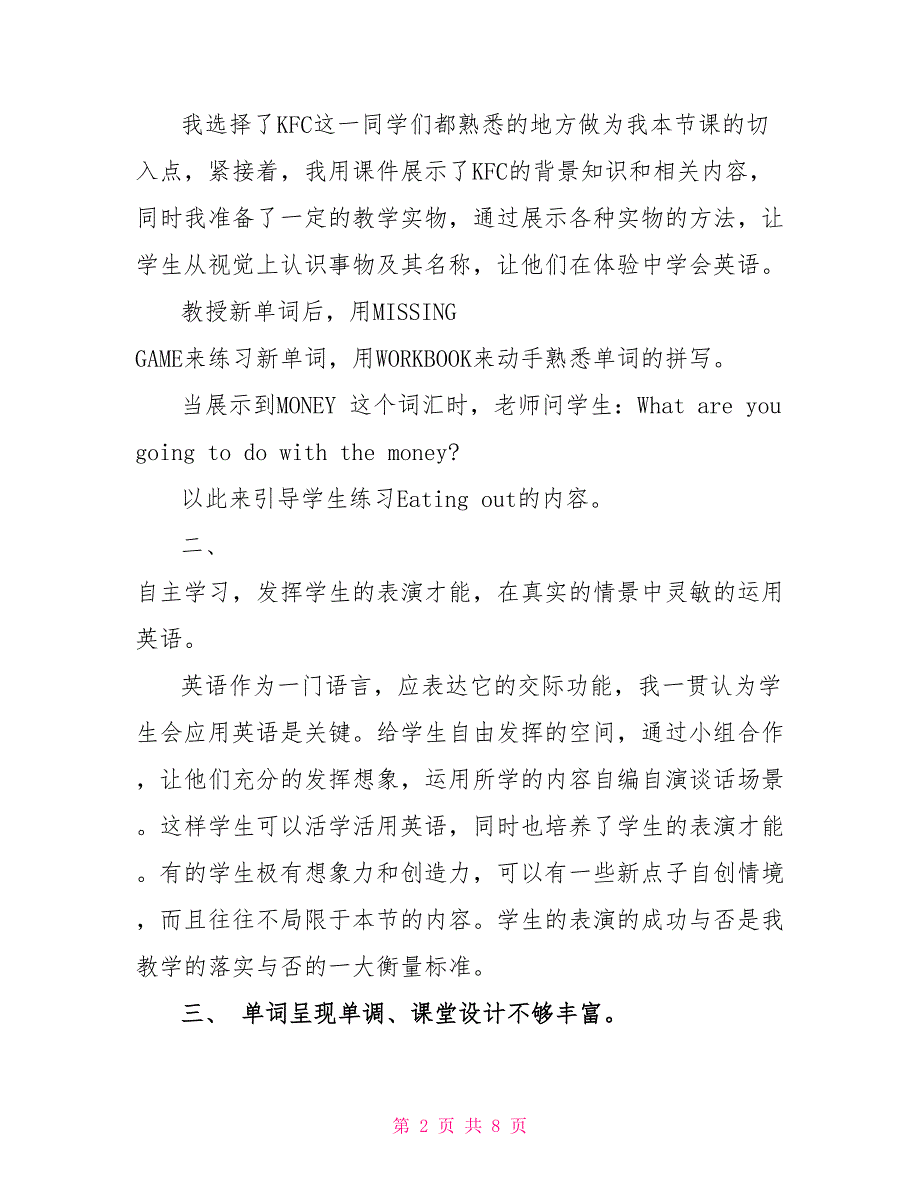 我选择了KFC这一同学们都熟悉的地方做为我本节课的切
入点，紧接着，我用课件展示了KFC的背景知识和相关内容，
同时我准备了一定的教学实物，通过展示各种实物的方法，让
学生从视觉上认识事物及其名称，让他们在体验中学会英语。
教授新单词后，用MISSING
GAME来练习新单词，用WORKBOOK来动手熟悉单词的拼写。
当展示到MONEY 这个词汇时，老师问学生：What are you
going to do with the money?
以此来引导学生练习Eating out的内容。
二、
自主学习，发挥学生的表演才能，在真实的情景中灵敏的运用
英语。
英语作为一门语言，应表达它的交际功能，我一贯认为学
生会应用英语是关键。给学生自由发挥的空间，通过小组合作
，让他们充分的发挥想象，运用所学的内容自编自演谈话场景
。这样学生可以活学活用英语，同时也培养了学生的表演才能
。有的学生极有想象力和创造力，可以有一些新点子自创情境
，而且往往不局限于本节的内容。学生的表演的成功与否是我
教学的落实与否的一大衡量标准。
三、 单词呈现单调、课堂设计不够丰富。
第 2 页 共 8 页